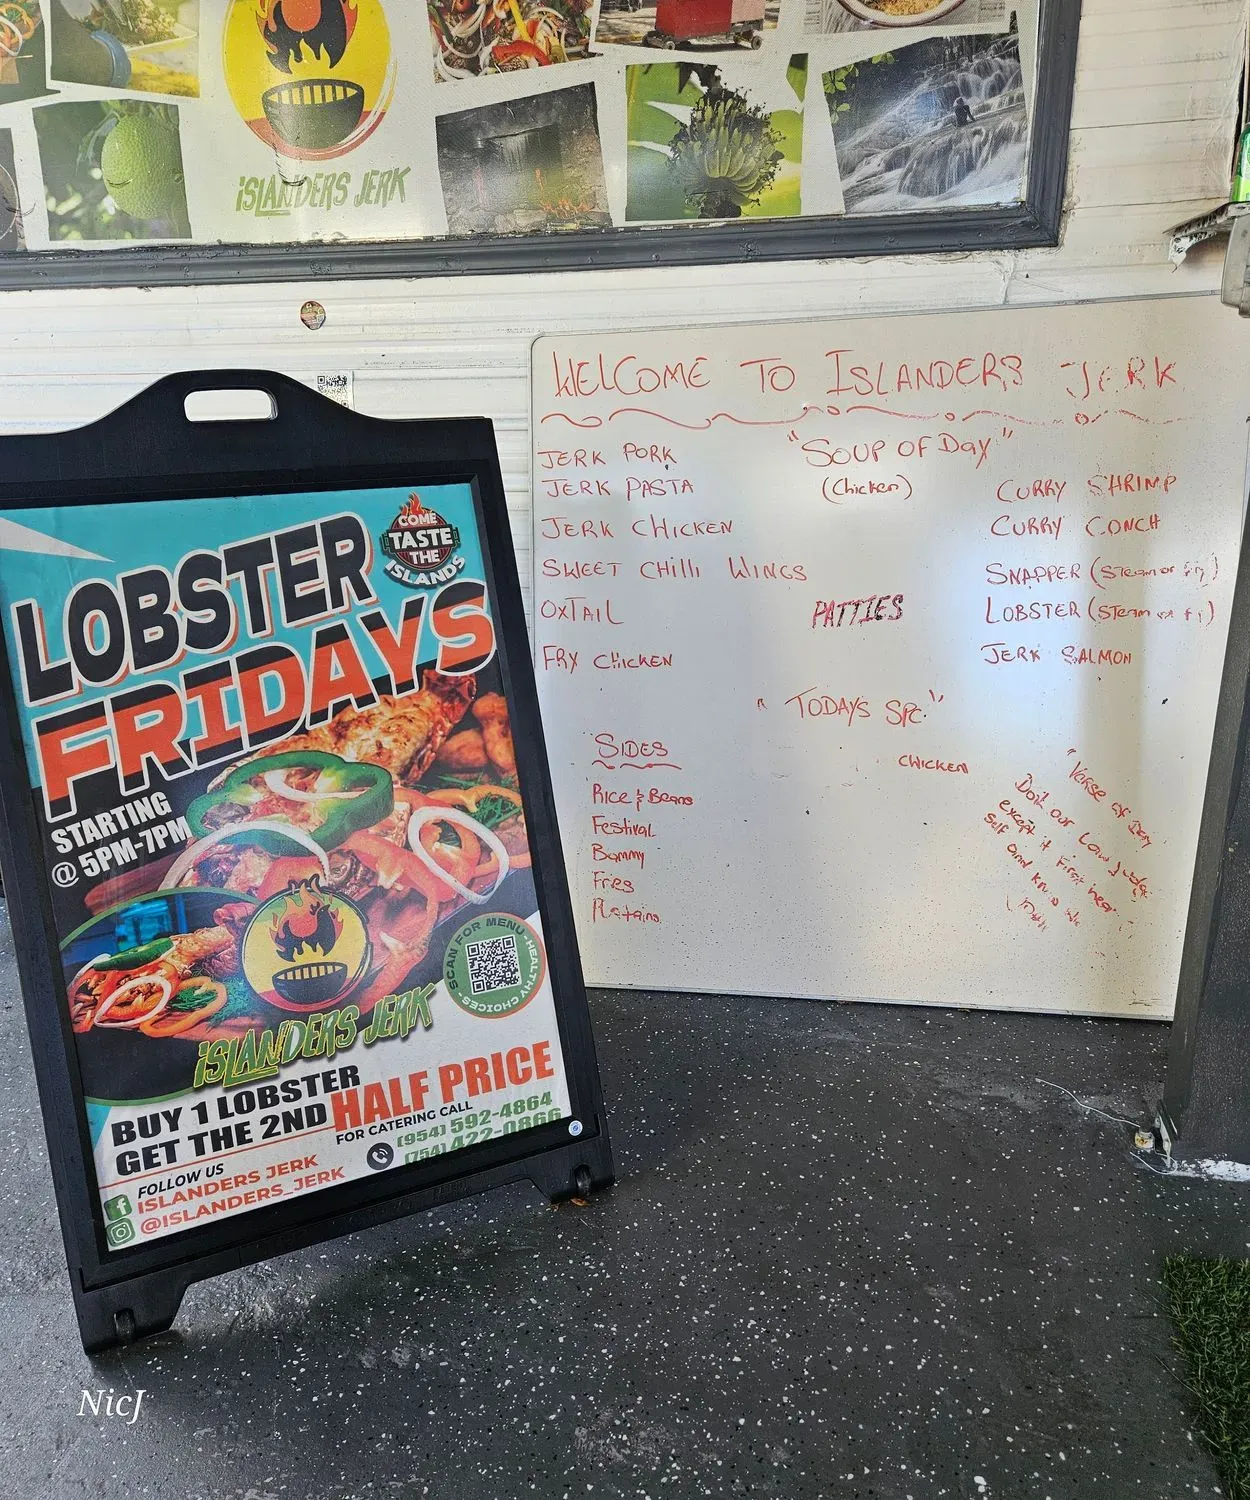 ISLANDERS JERK
WELCOME TO ISLANDERS JERK
JERK PORK
JERK PASTA
JERK CHICKEN
SWEET CHILLI WINGS
OXTAIL
FRY CHICKEN
"SOUP OF DAY"
(Chicken)
PATTIES
CURRY SHRIMP
CURRY CONCH
SNAPPER (STEAM OR FRY)
LOBSTER (STEAM OR
JERK SALMON
"TODAYS SPC."
CHICKEN
SIDES
Rice & Beans
Festival
Bammy
Fries
"Verse of Day
Dont our Law Judge
except it First hear
self and know
COME
TASTE
THE
ISLANDS
LOBSTER
FRIDAYS
STARTING
@ 5PM-7PM
SCAN FOR MENU - HEALTHY CHOICES -
ISLANDERS JERK
BUY 1 LOBSTER
GET THE 2ND HALF PRICE
FOR CATERING CALL
(954) 592-4864
(754) 422-0866
FOLLOW US
ISLANDERS JERK
@ISLANDERS_JERK
NicJ